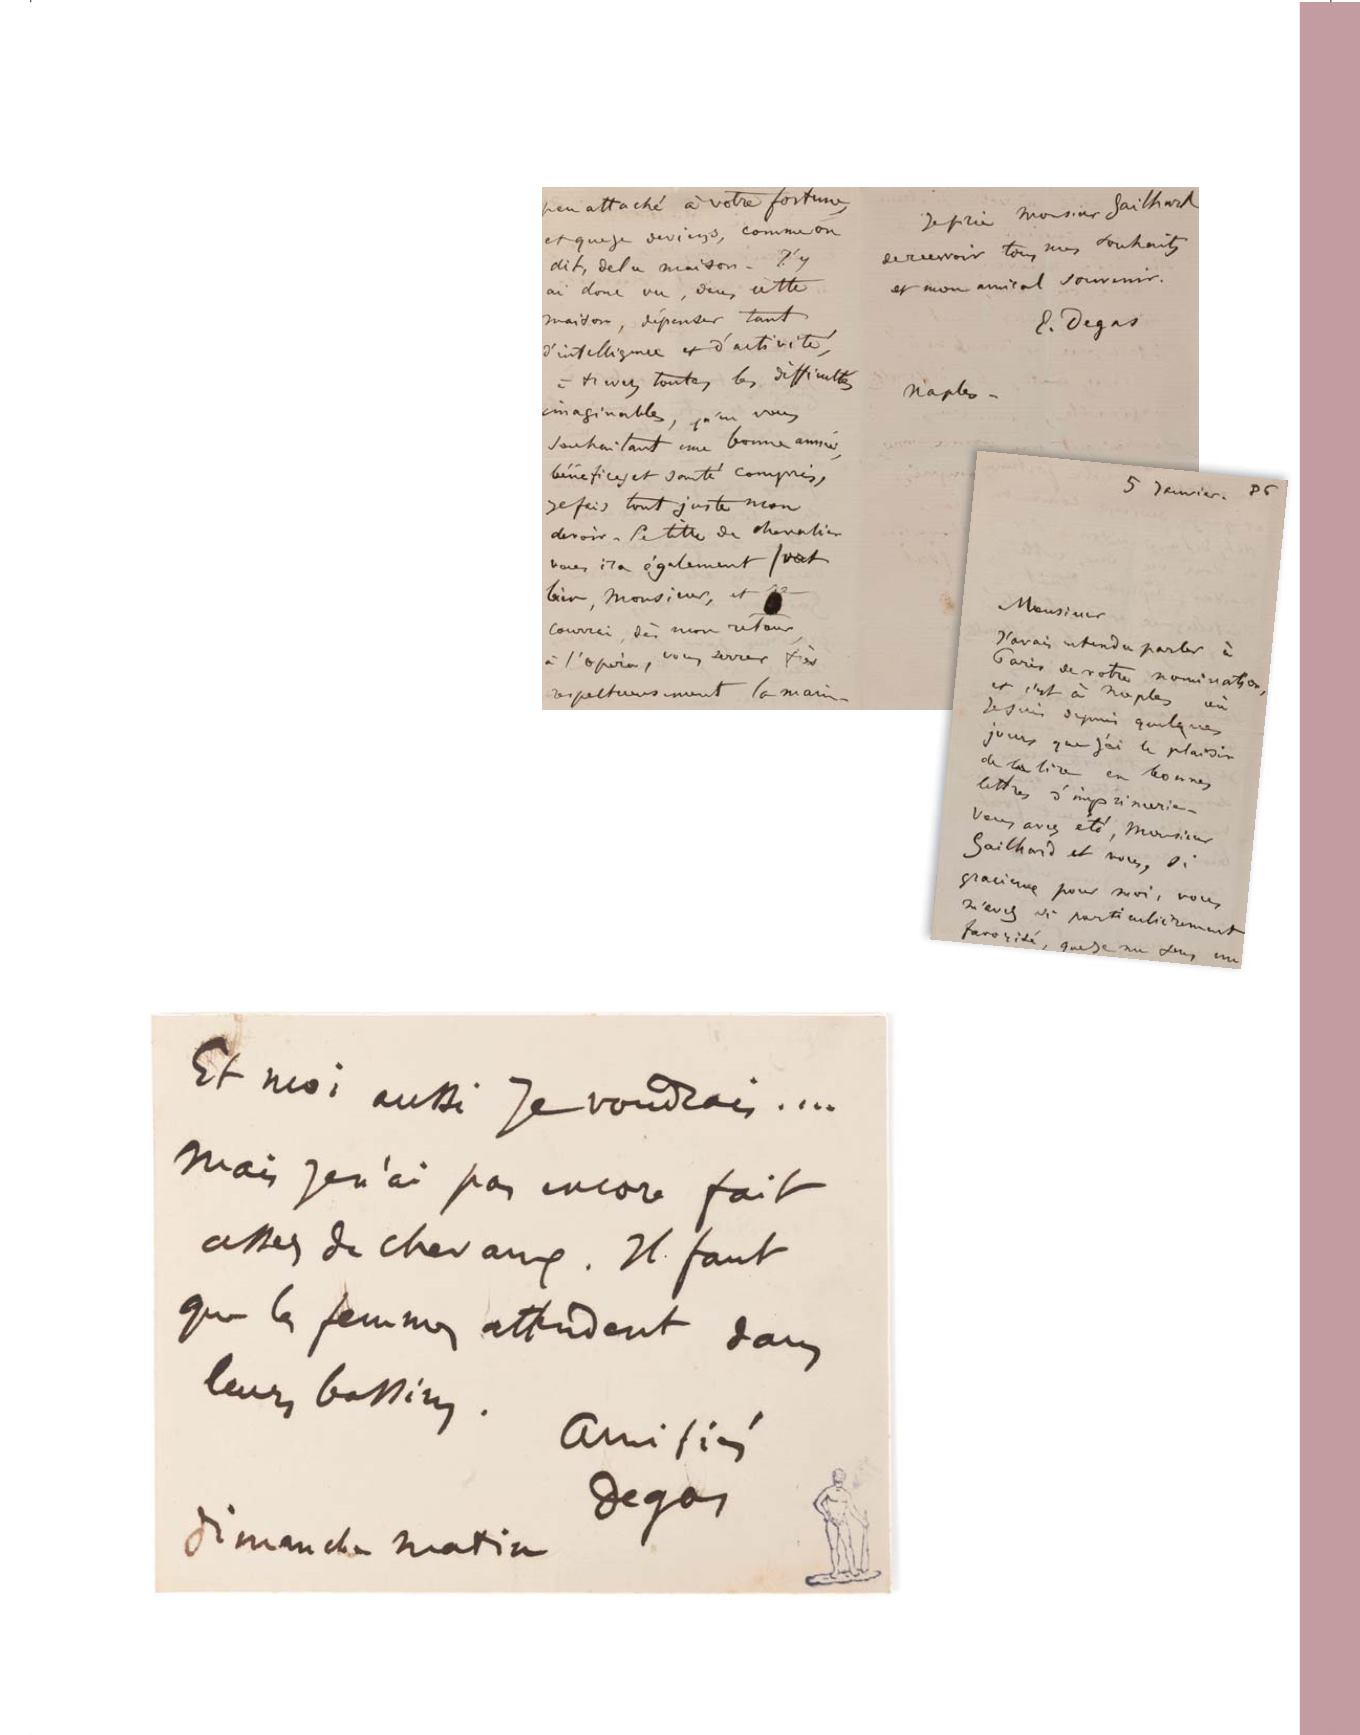 peu attaché à votre fortune,
et que je deviens, comme on
dit, de la maison - J'y
ai donc vu, dans cette
maison, dépenser tant
d'intelligence et d'activité,
à travers toutes les difficultés
imaginables, qu'en vous
souhaitant une bonne année,
bénéfices et santé compris,
je fais tout juste mon
devoir - Le titre de chevalier
vous ira également fort
bien, Monsieur, et je
courrai, dès mon retour,
à l'opéra, vous serrer très
respectueusement la main -
Je prie Monsieur Gailhard
de recevoir tous mes souhaits
et mon amical souvenir.
E. Degas
Naples -
5 Janvier. 86
Monsieur
J'avais entendu parler à
Paris de votre nomination,
et c'est à Naples où
Je suis depuis quelques
jours que j'ai le plaisir
de la lire en bonnes
lettres d'imprimerie -
Vous avez été, Monsieur
Gailhard et vous, si
gracieux pour moi, vous
m'avez si particulièrement
favorisé, que je me sens un
Et moi aussi Je voudrais....
Mais Je n'ai pas encore fait
assez de chevaux. Il faut
que les femmes attendent dans
leurs bassins.
Amitiés
Degas
dimanche matin